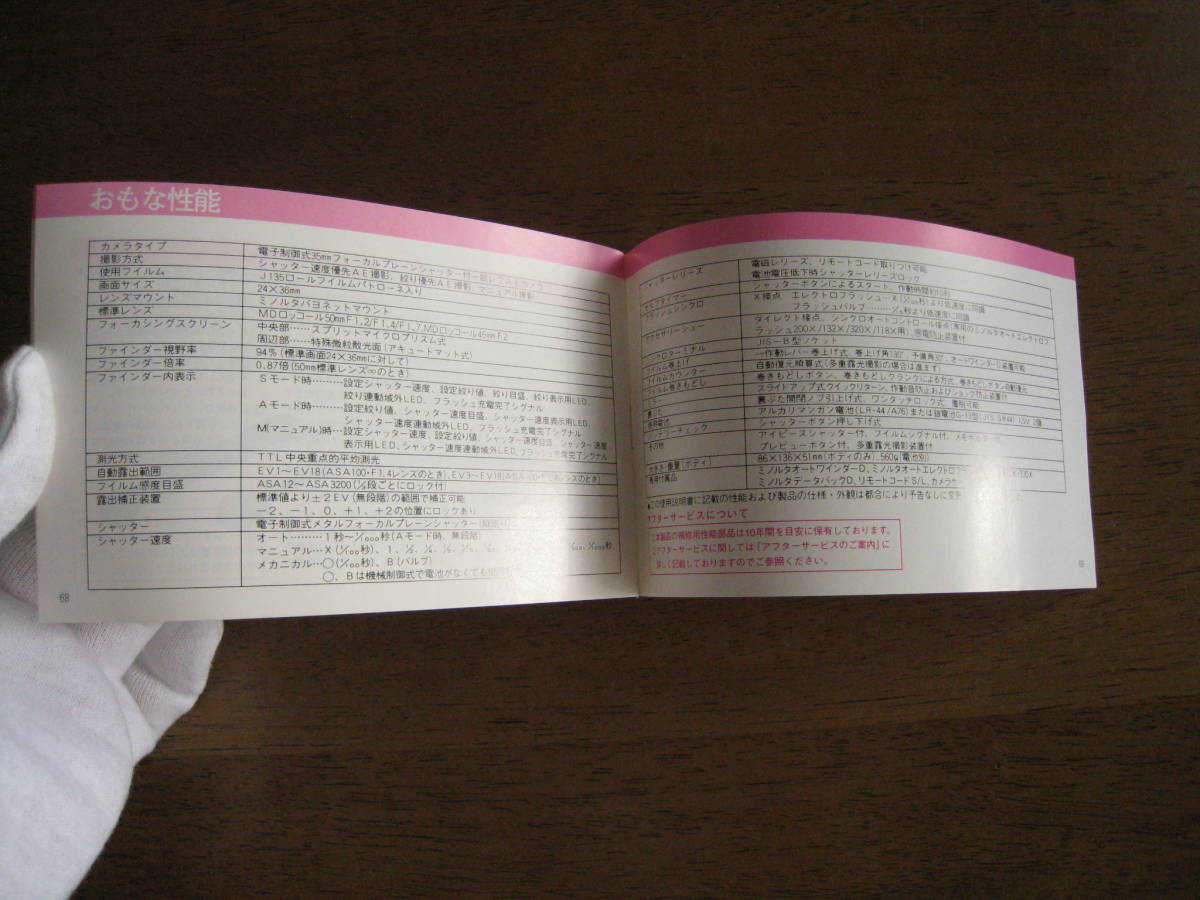 おもな性能
カメラタイプ 電子制御式35mmフォーカルプレーンシャッター付一眼レフAEカメラ
撮影方式 シャッター速度優先AE撮影、絞り優先AE撮影、マニュアル撮影
使用フイルム J135ロールフイルムパトローネ入り
画面サイズ 24×36mm
レンズマウント ミノルタバヨネットマウント
標準レンズ MDロッコール50mmF1.2/F1.4/F1.7、MDロッコール45mmF2
フォーカシングスクリーン 中央部……スプリットマイクロプリズム式
周辺部……特殊微粒散光面(アキュートマット式)
ファインダー視野率 94%(標準画面24×36mmに対して)
ファインダー倍率 0.87倍(50mm標準レンズ∞のとき)
ファインダー内表示 Sモード時………設定シャッター速度、設定絞り値、絞り目盛、絞り表示用LED、
絞り連動域外LED、フラッシュ充電完了シグナル
Aモード時………設定絞り値、シャッター速度目盛、シャッター速度表示用LED、
シャッター速度連動域外LED、フラッシュ充電完了シグナル
M(マニュアル)時…設定シャッター速度、設定絞り値、シャッター速度目盛、シャッター速度
表示用LED、シャッター速度連動域外LED、フラッシュ充電完了シグナル
測光方式 TTL中央重点的平均測光
自動露出範囲 EV1〜EV18(ASA100・F1.4レンズのとき)、EV3〜EV18
フイルム感度目盛 ASA12〜ASA3200(⅓段ごとにロック付)
露出補正装置 標準値より±2EV(無段階)の範囲で補正可能
−2、−1、0、+1、+2の位置にロックあり
シャッター 電子制御式メタルフォーカルプレーンシャッター
シャッター速度 オート……1秒〜1/1000秒(Aモード時、無段階)
マニュアル…X(1/100秒)、1、½、¼、⅛
メカニカル…○(1/100秒)、B(バルブ)
○、Bは機械制御式で電池がなくても
68
シャッターレリーズ 電磁レリーズ、リモートコード取りつけ可能
電池電圧低下時シャッターレリーズロック
セルフタイマー シャッターボタンによるスタート、作動時間約10秒
フラッシュシンクロ X接点 エレクトロフラッシュ…X(1/100秒)より低速度に同調
フラッシュバルブ……より低速度に同調
アクセサリーシュー ダイレクト接点、シンクロオートコントロール接点(専用のミノルタオートエレクトロフ
ラッシュ200X/132X/320X/118X用)、感電防止装置付
シンクロターミナル JIS-B型ソケット
フイルム巻上げ 一作動レバー巻上げ式、巻上げ角130°、予備角30°、オートワインダーD装着可能
フイルムカウンター 自動復元順算式(多重露光撮影の場合は進まず)
フイルム巻きもどし 巻きもどしボタン、巻きもどしクランクによる方式、巻きもどしボタン自動復元
ミラー スライドアップ式クイックリターン、作動音防止およびショック防止装置付
裏ぶた 裏ぶた開閉ノブ引上げ式、ワンタッチロック式、着脱可能
使用電池 アルカリマンガン電池(LR-44/A76)または銀電池 1.5V 2個
バッテリーチェック シャッターボタン押し下げ式
その他 アイピースシャッター付、フイルムシグナル付、メモホルダー付
プレビューボタン付、多重露光撮影装置付
大きさ・重量(ボディ) 86×136×51mm(ボディのみ)、560g(電池別)
専用付属品 ミノルタオートワインダーD、ミノルタオートエレクトロフ
ミノルタデータバックD、リモートコードS/L、カメラケー
●この使用説明書に記載の性能および製品の仕様・外観は都合により予告なしに変更
アフターサービスについて
本製品の補修用性能部品は10年間を目安に保有しております。
アフターサービスに関しては『アフターサービスのご案内』に
詳しく記載しておりますのでご参照ください。
69